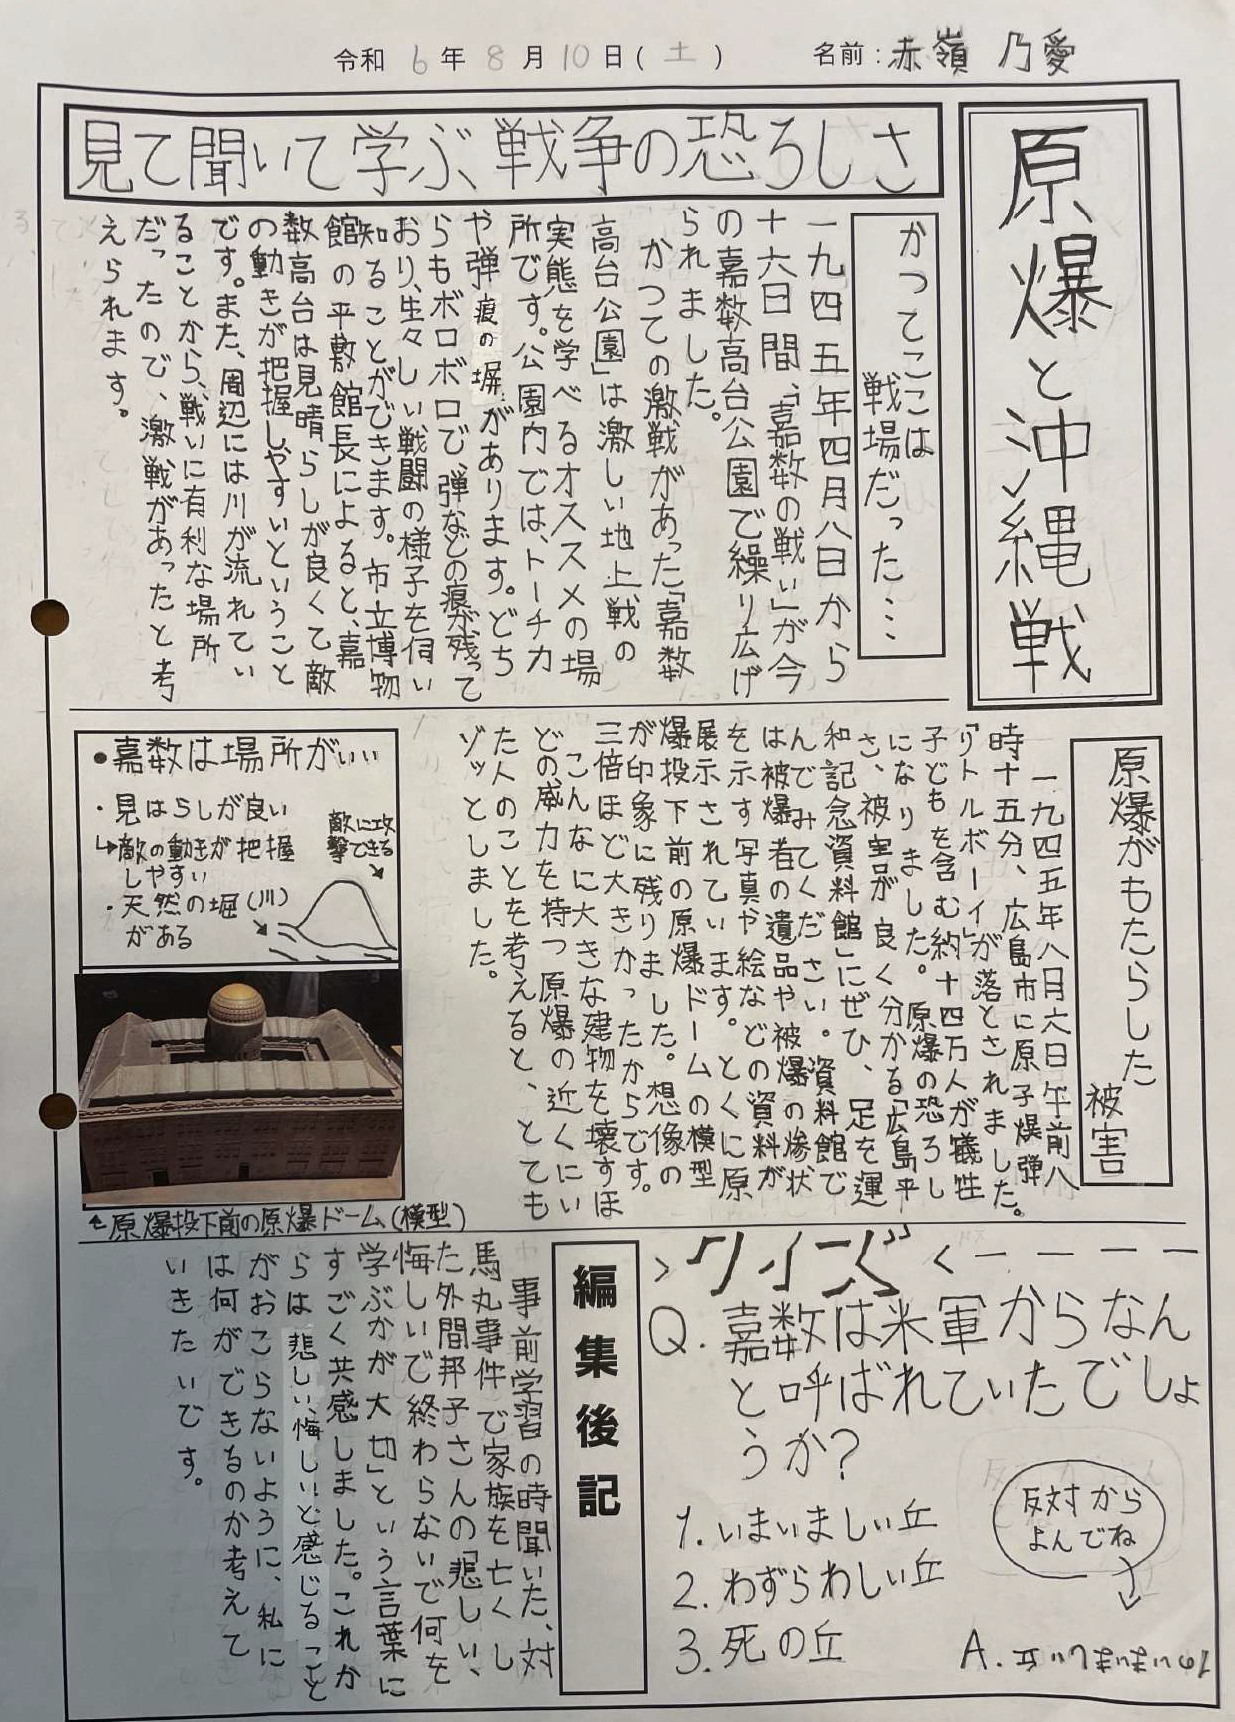 令和 6 年 8 月 10 日(土)
名前:赤嶺 乃愛
原爆と沖縄戦
見て聞いて学ぶ、戦争の恐ろしさ
かつてここは
戦場だった…
一九四五年四月八日から
十六日間、「嘉数の戦い」が今
の嘉数高台公園で繰り広げ
られました。
かつての激戦があった「嘉数
高台公園」は激しい地上戦の
実態を学べるオススメの場
所です。公園内では、トーチカ
や弾痕の塀がありますo。どち
らもボロボロで、弾などの痕が残って
おり、生々しい戦闘の様子を伺い
知ることができます。市立博物
館の平敷館長によると、嘉
数高台は見晴らしが良くて敵
の動きが把握しやすいということ
です。また、周辺には川が流れてい
ることから、戦いに有利な場所
だったので、激戦があったと考
えられます。
原爆がもたらした
被害
一九四五年八月六日午前八
時十五分、広島市に原子爆弾
「リトルボーイ」が落とされました。
子どもを含む約十四万人が犠牲
になりました。原爆の恐ろし
さ、被害が良く分かる「広島平
和記念資料館」にぜひ、足を運
んでみてください。資料館で
は被爆者の遺品や被爆の惨状
を示す写真や絵などの資料が
展示されています。とくに原
爆投下前の原爆ドームの模型
が印象に残りました。想像の
三倍ほど大きかったからです。
こんなに大きな建物を壊すほ
どの威力を持つ原爆の近くにい
た人のことを考えると、とても
ゾッとしました。
・嘉数は場所がいい
・見はらしが良い
↳敵の動きが把握
しやすい
・天然の堀(川)
がある
敵に攻
撃できる
←原爆投下前の原爆ドーム(模型)
>クイズ<
Q.嘉数は米軍からなん
と呼ばれていたでしょ
うか?
1.いまいましい丘
2.わずらわしい丘
3.死の丘
反対から
よんでね
A.1のいまいましい丘
編集後記
事前学習の時聞いた、対
馬丸事件で家族を亡くし
た外間邦子さんの「悲しい、
悔しいで終わらないで何を
学ぶかが大切」という言葉に
すごく共感しました。これか
らは悲しい、悔しいと感じること
がおこらないように、私に
は何ができるのか考えて
いきたいです。